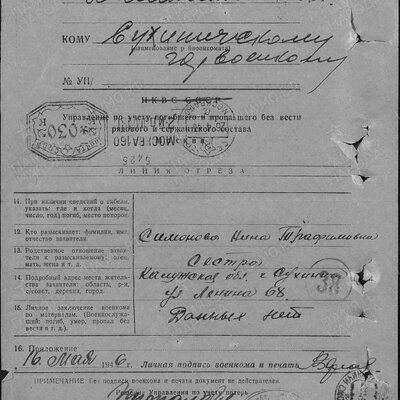 КОМУ Сухиничскому
(наименование р йвоенкомата)
горвоенкому
№ УП/
НКВС СССР
Управление по учету погибшего и пропавшего без вести
рядового и сержантского состава
МОСКВА 160
ЛИНИЯ ОТРЕЗА
11. При наличии сведений о гибели, указать: где и когда (месяц, число, год) погиб, место похорон.
12. Кто разыскивает: фамилия, имя, отчество заявителя. Симонова Нина Трафимовна
13. Родственное отношение заявителя к разыскиваемому, мать, жена и т. д. Сестра
14. Подробный адрес места жительства заявителя: область, р-н, с/совет, деревня, город. Калужская обл. г. Сухиничи
ул Ленина 68
15. Личное заключение военкома по материалам. (Военнослужащий: погиб, умер, пропал без вести и т. д.). Данных нет
16. Приложение
"16" Мая 1946 г. Личная подпись военкома и печать
ПРИМЕЧАНИЕ Без подписи военкома и печати документ не действителен.
Управления по учету потерь